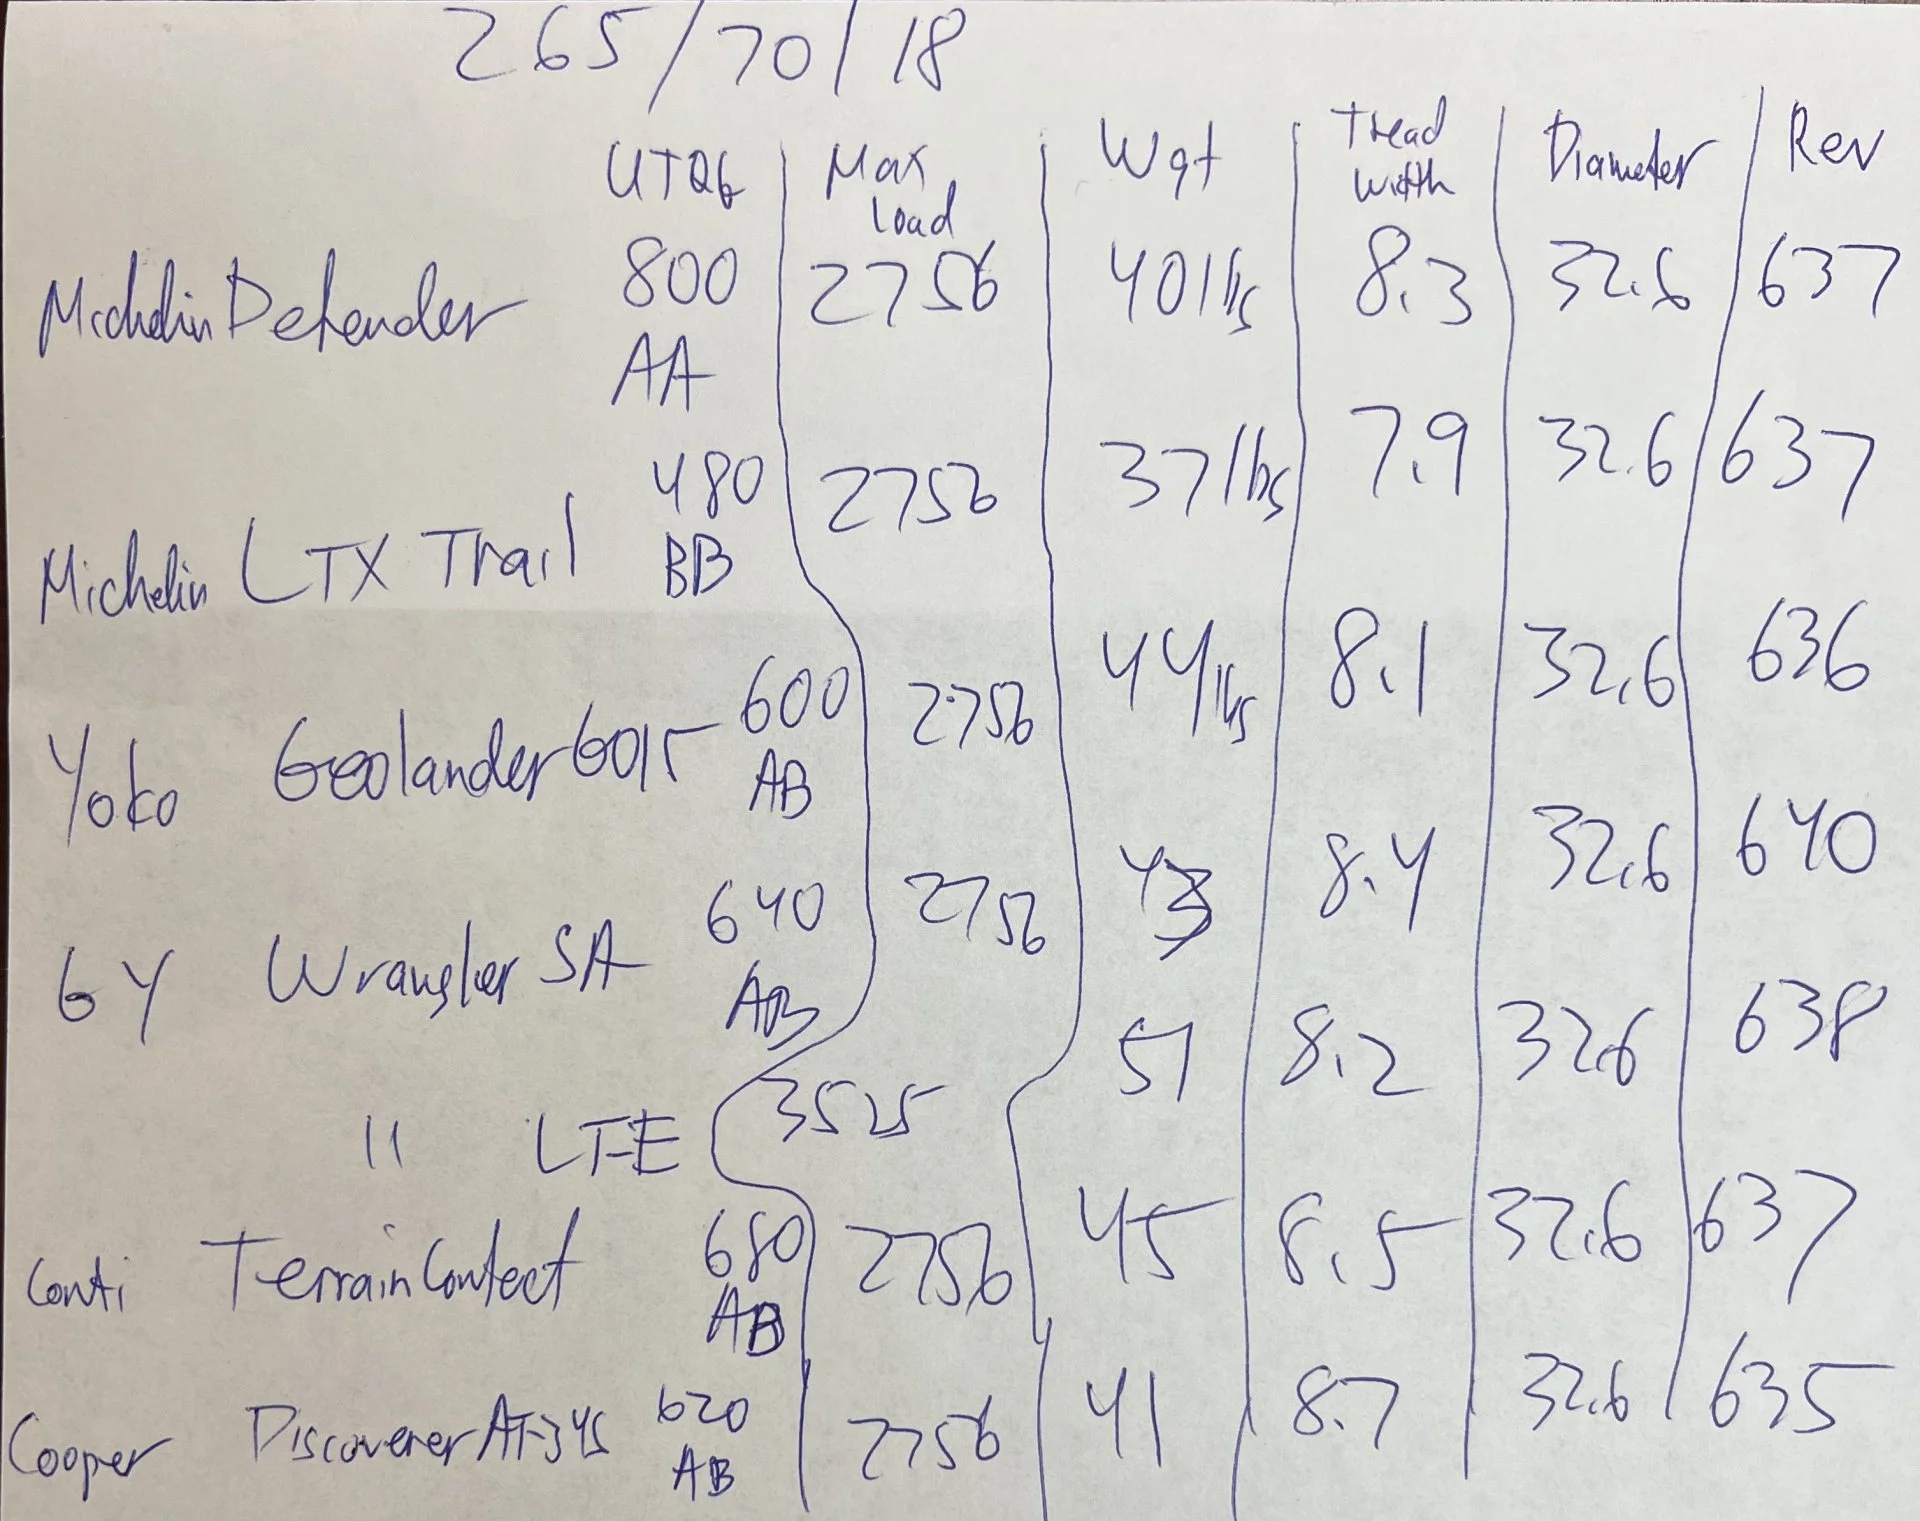 265/70/18
UTQG Max Load Wgt Tread Width Diameter Rev
Michelin Defender 800 AA 2756 40 lbs 8.3 32.6 637
Michelin LTX Trail 480 BB 2756 37 lbs 7.9 32.6 637
Yoko Geolander G015 600 AB 2756 44 lbs 8.1 32.6 636
GY Wrangler SA 640 AB 2756 43 8.4 32.6 640
" LT-E 3525 51 8.2 32.6 638
Conti TerrainContact 680 AB 2756 45 8.5 32.6 637
Cooper Discoverer AT-34S 620 AB 2756 41 8.7 32.6 635